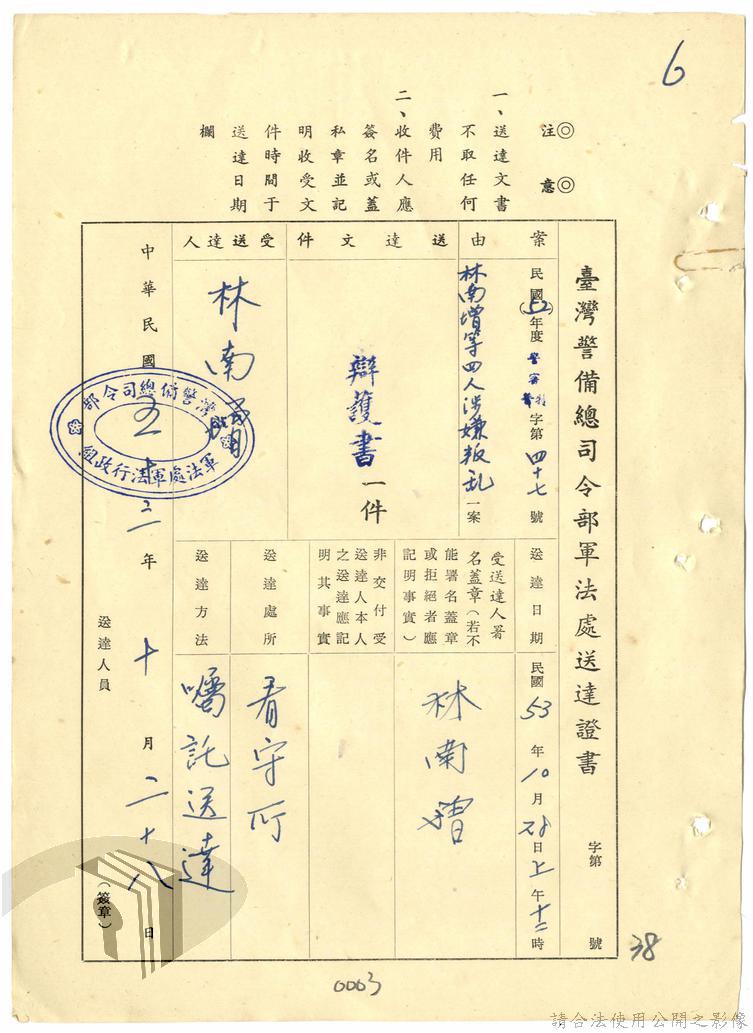 6
注意
一、送達文書
不取任何
費用
二、收件人應
簽名或蓋
私章並記
明收受文
件時間于
送達日期
欄
臺灣警備總司令部軍法處送達證書
字第
號
案由
民國(52)年度警審特字第四十七號
林南增等四人涉嫌叛乱一案
送達文件
辯護書一件
受送達人
林南增
送達日期
民國53年10月28日上午十二時
受送達人署
名蓋章(若不
能署名蓋章
或拒絕者應
記明事實)
林南增
非交付受
送達人本人
之送達應記
明其事實
送達處所
看守所
送達方法
囑託送達
中華民國五十三年十月二十八日
臺灣警備總司令部
軍法處軍法行政組
送達人員
(簽章)
38
0003
請合法使用公開之影像